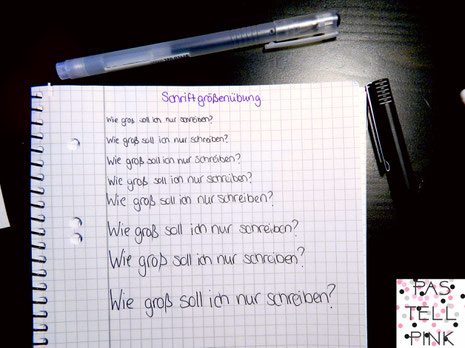 Schriftgrößenübung
Wie groß soll ich nur schreiben?
Wie groß soll ich nur schreiben?
Wie groß soll ich nur schreiben?
Wie groß soll ich nur schreiben?
Wie groß soll ich nur schreiben?
Wie groß soll ich nur schreiben?
Wie groß soll ich nur schreiben?
Wie groß soll ich nur schreiben?
PAS
TELL
PINK